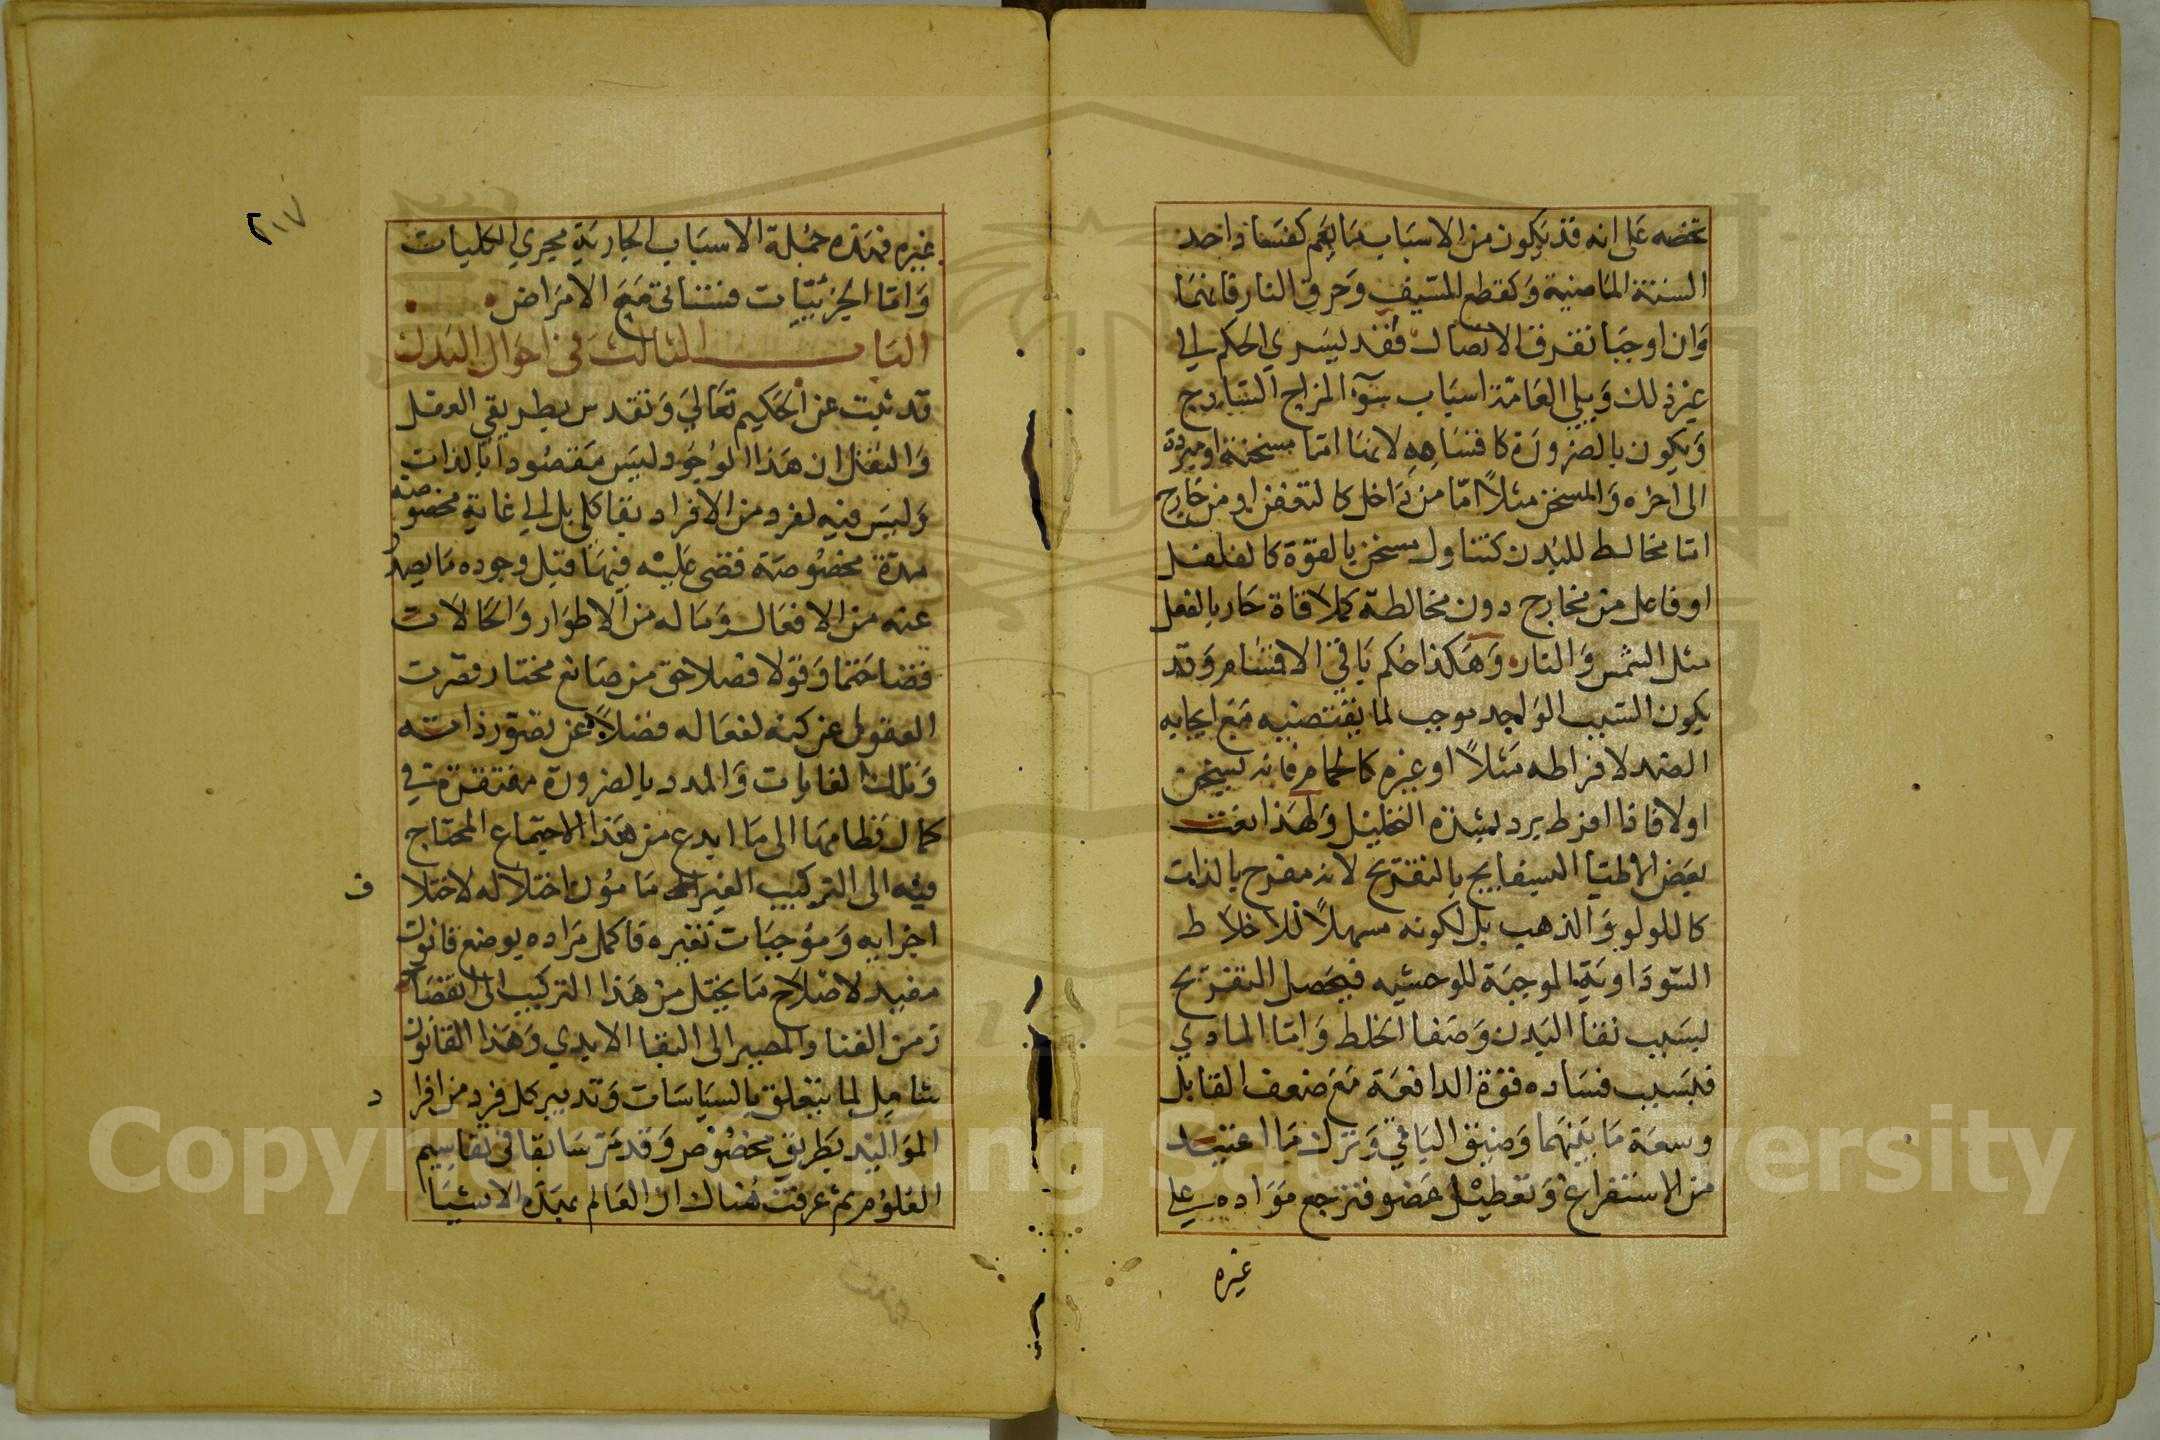 تخصه على انه قد يكون من الاسباب ما يعم كفساد احد
الستة الماضية وكقطع السيف وحرق النار فانهما
وان اوجبا تفرق الاتصال فقد يسري الحكم الى
غير ذلك ويلي العامة اسباب سوء المزاج الساذج
ويكون بالضرورة كاقسامه لانها اما مسخنة او مبردة
الى اخره والمسخن مثلاً اما من داخل كالتعفن او من خارج
اما مخالط للبدن كتناول مسخن بالقوة كالفلفل
او فاعل من خارج دون مخالطة كملاقاة حار بالفعل
مثل الشمس والنار وهكذا حكم باقي الاقسام وقد
يكون السبب الواحد موجب لما يقتضيه مع ايجابه
الضد لافراطه مثلاً او غيره كالحمام فانه يسخن
اولا فاذا افرط برد لشدة التحليل ولهذا نعت
بعض الاطبا السفايج بالتفريح لانه مفرح بالذات
كاللولو والذهب بل لكونه مسهلاً للاخلاط
السوداوية الموجبة للوحشيه فيحصل التفريح
بسبب نقا البدن وصفا الخلط واما المادي
فلسبب فساده قوة الدافعة مع ضعف القابل
وسعة ما بينهما وضيق الباقي وترك ما اعتيد
من الاستفراغ وتعطيل عضو فترجع مواده على
غيره
٢١٧
غيره فهذه جملة الاسباب الجارية مجري الكليات
واما الجزئيات فستاتي مع الامراض
الباب الثالث في احوال البدن
قد ثبت عن الحكيم تعالي وتقدس بطريقي العقل
والنقل ان هذا الوجود ليس مقصوداً بالذات
وليس فيه لفرد من الافراد بقا كلي بل الي غاية مخصوصة
مدة مخصوصة قضى عليه فيها قبل وجوده ما يصدر
عنه من الافعال وما له من الاطوار والحالات
قضا حتما وقولا فصلا حق من صانع مختار قصرت
العقول عن كنه افعاله فضلاً عن تصور ذاته
وتلك الغايات والمدد بالضرورة مفتقرة في
كمال نظامها الى ما ابدع من هذا الاجتماع المحتاج
فيه الى التركيب الغير مامون اختلاله لاختلا
ف
اجزايه وموجبات تغيره فاكمل مراده بوضع قانون
مفيد لاصلاح ما يختل من هذا التركيب الى انقضا
زمن الفنا والمصير الى البقا الابدي وهذا القانون
شامل لما يتعلق بالسياسات وتدبير كل فرد من افرا
د
المواليد بطريق مخصوص وقد مر سابقا في تقاسيم
العلوم ثم عرفت هناك ان العالم بهذه الاشيا